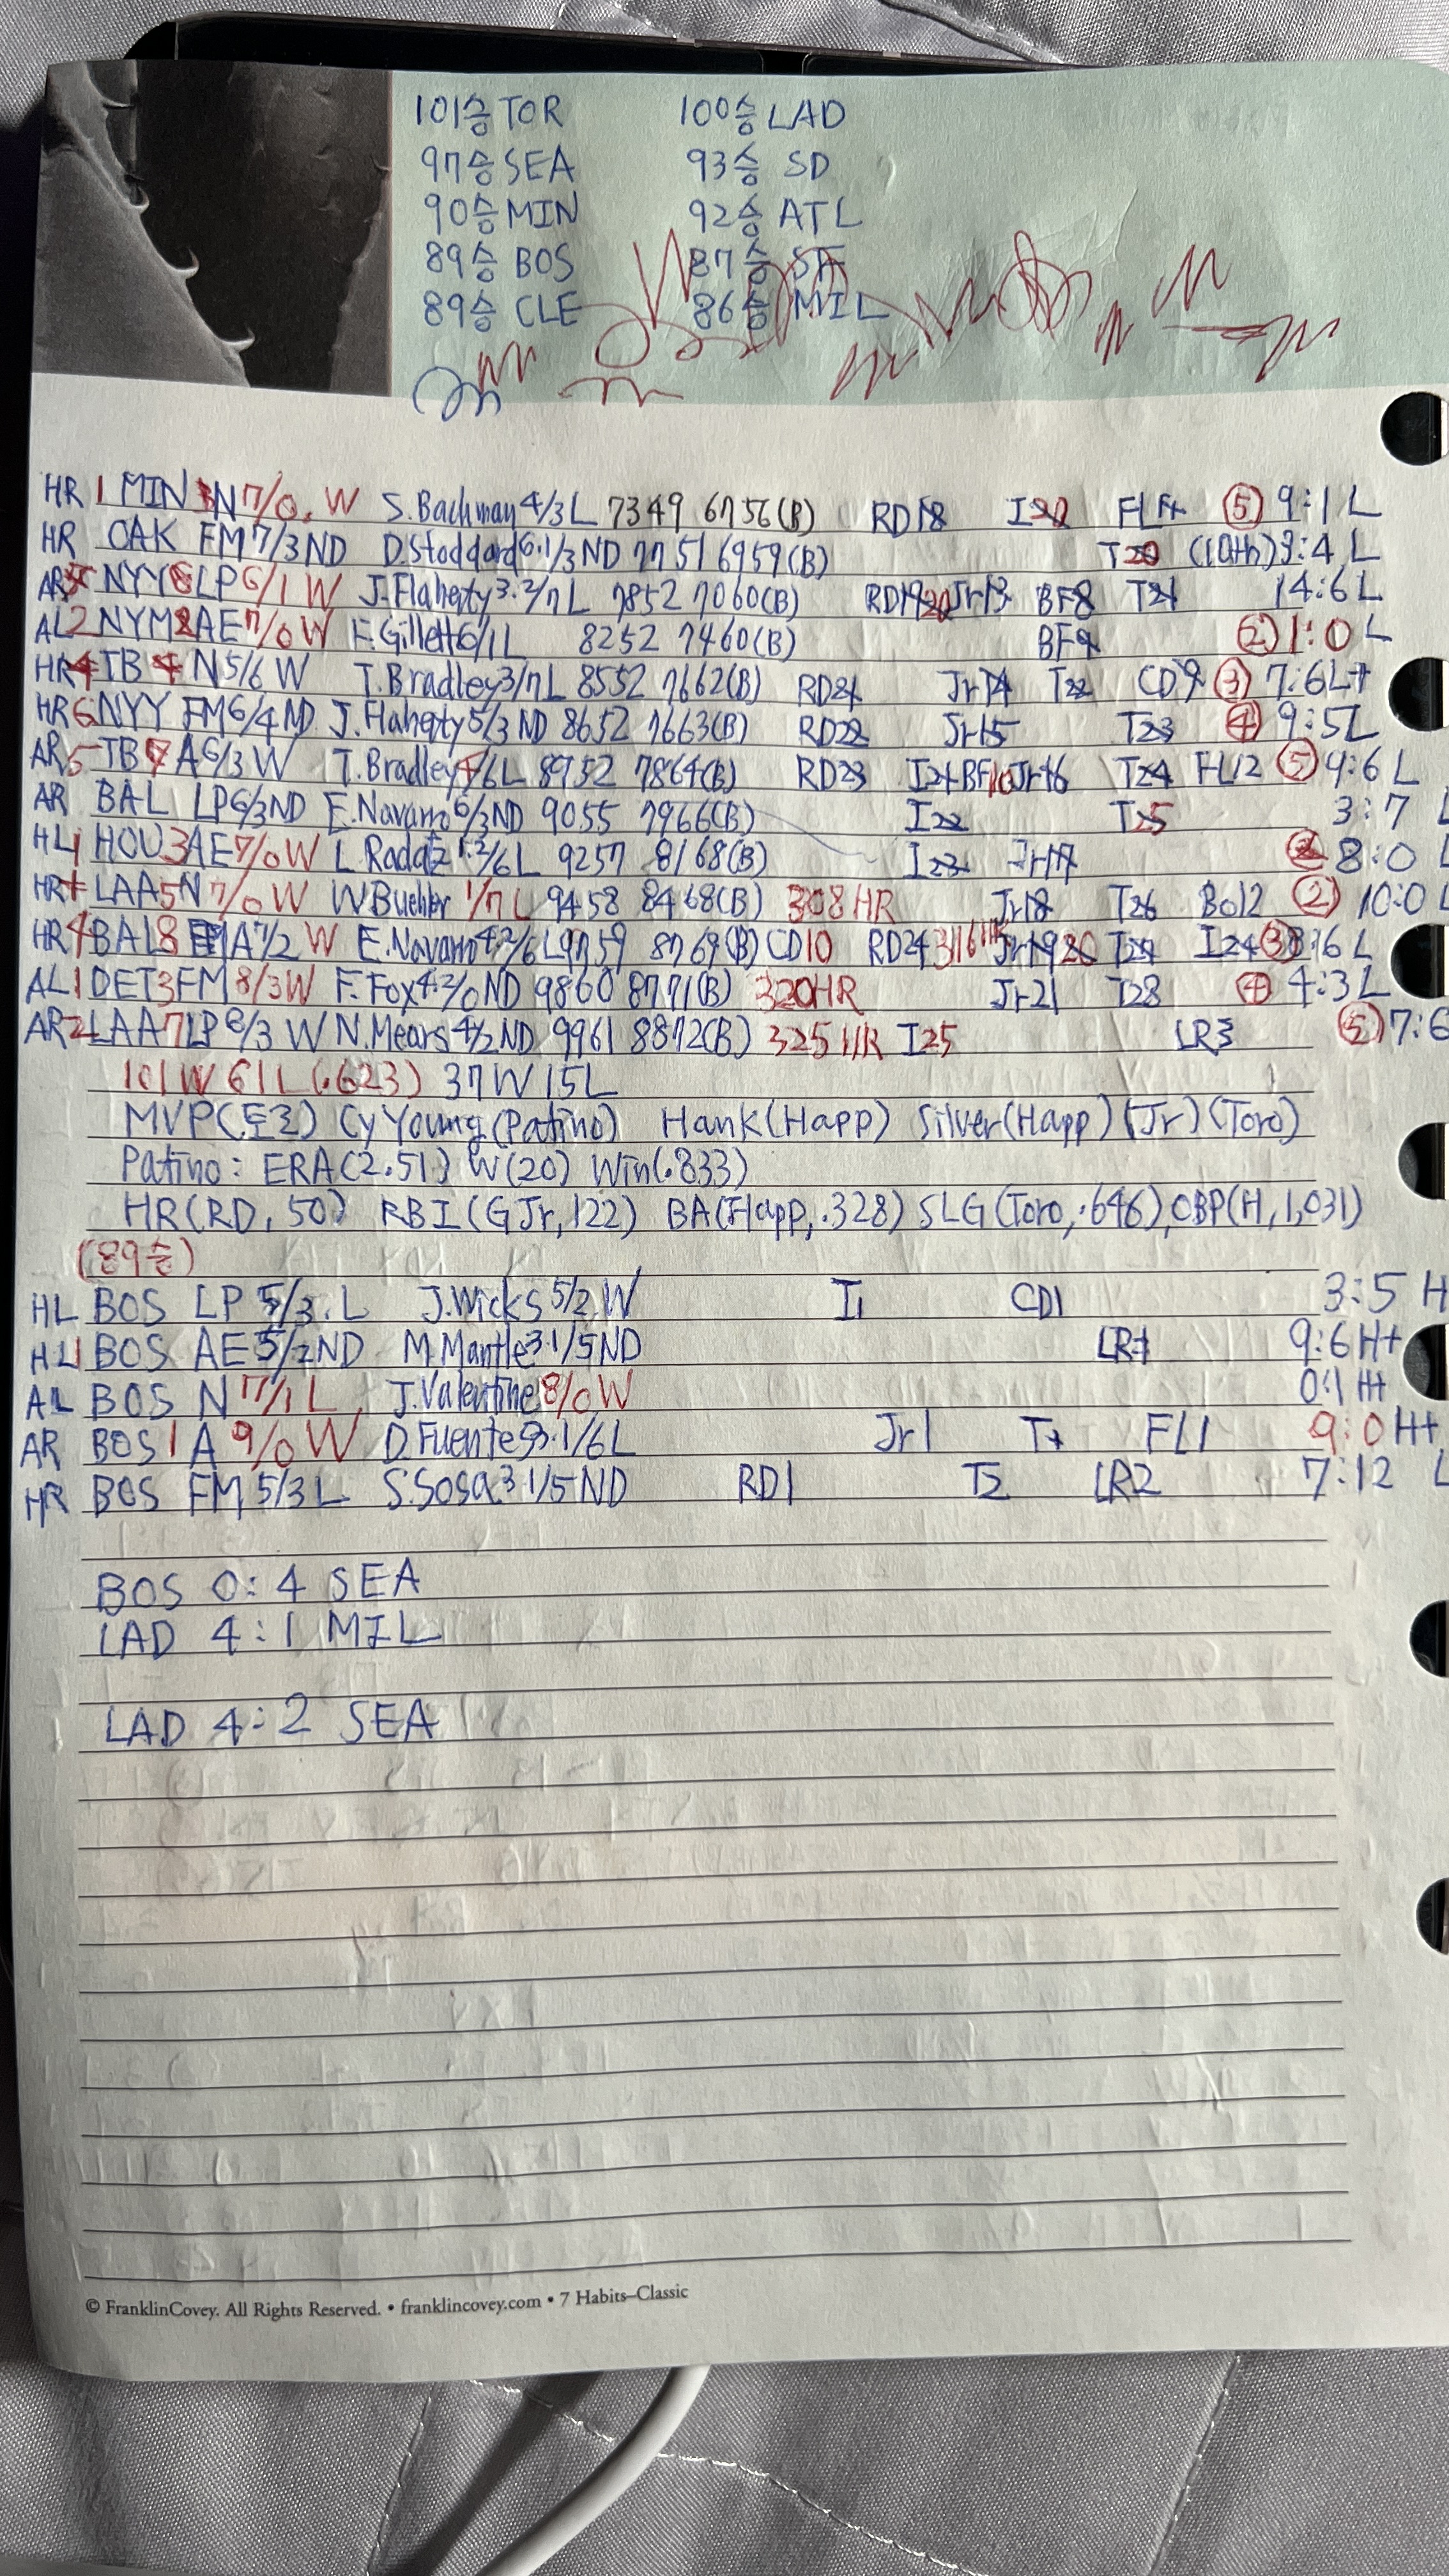 101승 TOR 100승 LAD
97승 SEA 93승 SD
90승 MIN 92승 ATL
89승 BOS 87승 SF
89승 CLE 86승 MIL
HR 1 MIN N 7/0. W S.Bachman 4/3 L 7349 6756(B) RD18 FL11 ⑤ 9:1 L
HR OAK FM 7/3 ND D.Stoddard 6.1/3 ND 7751 6959(B) T20 (10th) 3:4 L
AR NYY LP 6/1 W J.Flaherty 3.2/7 L 7852 7060(B) RD19 20 Jr13 BF8 T21 14:6 L
AL 2 NYM 2 AE 7/0 W F.Gillett 6/1 L 8252 7460(B) BF9 ② 1:0 L
HR 4 TB 4 N 5/6 W T.Bradley 3/7 L 8552 7662(B) RD21 Jr14 T22 CD9 ③ 7:6 L+
HR 6 NYY FM 6/4 ND J.Flaherty 5/3 ND 8652 7663(B) RD22 Jr15 T23 ④ 9:5 L
AR 5 TB A 6/3 W T.Bradley 4/6 L 8952 7864(B) RD23 I21 BF10 Jr16 T24 FL12 ⑤ 9:6 L
AR BAL LP 6/3 ND E.Navarro 6/3 ND 9055 7966(B) I22 T25 3:7 L
HL 1 HOU 3 AE 7/0 W L.Rodaz 1.2/6 L 9257 8168(B) I23 Jr17 ② 8:0 L
HR LAA 5 N 7/0 W W.Buehler 1/7 L 9458 8468(B) 308 HR Jr18 T26 Bo12 ② 10:0 L
HR 4 BAL 8 A 7/2 W E.Navarro 4.2/6 L 9759 8769(B) CD10 RD24 316HR Jr19 20 T27 I24 ③ 8:6 L
AL 1 DET 3 FM 8/3 W F.Fox 4.2/0 ND 9860 8771(B) 320HR Jr21 T28 ④ 4:3 L
AR 2 LAA 7 LP 6/3 W N.Mears 4/2 ND 9961 8872(B) 325 HR I25 LR3 ⑤ 7:6
101W 61L (.623) 37W 15L
MVP(토로) Cy Young(Patino) Hank(Happ) Silver(Happ)(Jr)(Toro)
Patino: ERA(2.51) W(20) Win(.833)
HR(RD, 50) RBI(GJr,122) BA(Happ, .328) SLG(Toro, .646), OBP(H, 1,031)
(89승)
HL BOS LP 5/3. L J.Wicks 5/2 W I1 CD1 3:5 H
HL 1 BOS AE 5/2 ND M.Mantle 3.1/5 ND LR1 9:6 H+
AL BOS N 7/1 L J.Valentine 8/0 W 0:1 H+
AR BOS 1 A 9/0 W D.Fuentes 3.1/6 L Jr1 T1 FL1 9:0 H+
HR BOS FM 5/3 L S.Sosa 3.1/5 ND RD1 T2 LR2 7:12 L
BOS 0:4 SEA
LAD 4:1 MIL
LAD 4:2 SEA
© FranklinCovey. All Rights Reserved. • franklincovey.com • 7 Habits–Classic